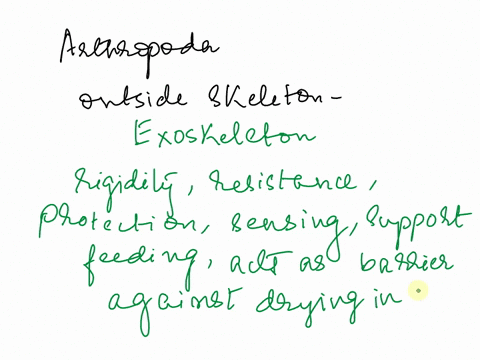 Arthropoda
outside skeleton -
Exoskeleton
rigidity, resistance,
protection, sensing, support
feeding, acts as barrier
against drying in